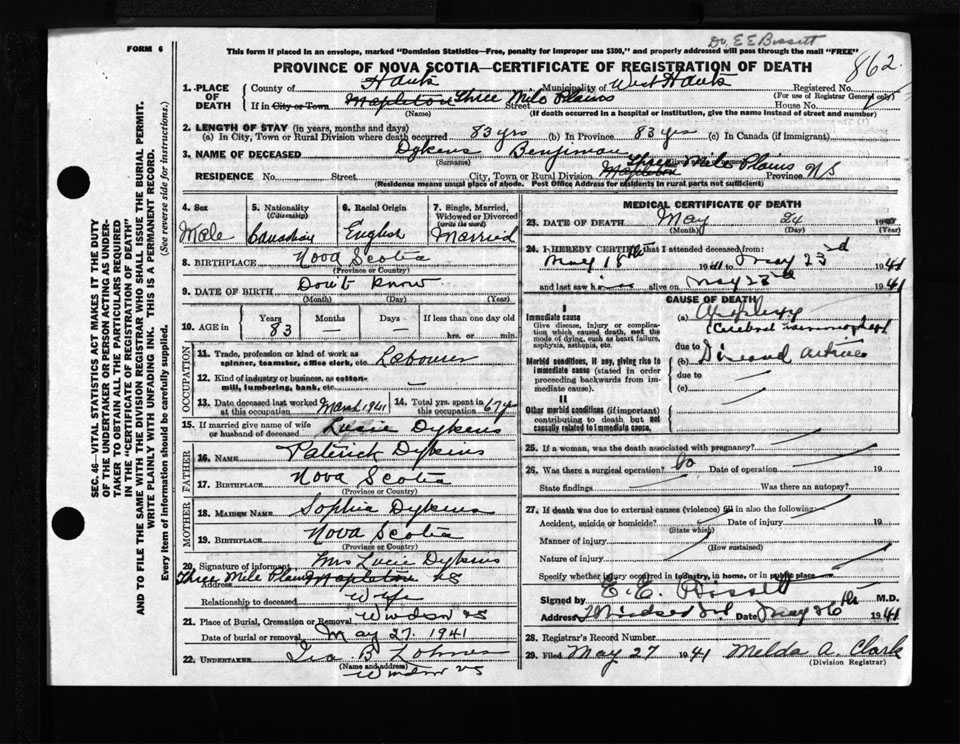 FORM 6
This form if placed in an envelope, marked "Dominion Statistics—Free, penalty for improper use $300," and properly addressed will pass through the mail "FREE"
Dr. E E Bissett
PROVINCE OF NOVA SCOTIA—CERTIFICATE OF REGISTRATION OF DEATH
862
1. PLACE OF DEATH
County of Hants Municipality of West Hants Registered No.
(For use of Registrar General only)
If in City or Town Mapleton Three Mile Plains Street House No.
(Name) (If death occurred in a hospital or institution, give the name instead of street and number)
2. LENGTH OF STAY (in years, months and days)
(a) In City, Town or Rural Division where death occurred 83 yrs (b) In Province 83 yrs (c) In Canada (if immigrant)
3. NAME OF DECEASED Dykens Benjiman
(Surname)
RESIDENCE No. Street City, Town or Rural Division Mapleton Three Mile Plains Province NS
(Residence means usual place of abode. Post Office Address for residents in rural parts not sufficient)
4. Sex Male
5. Nationality (Citizenship) Canadian
6. Racial Origin English
7. Single, Married, Widowed or Divorced (write the word) Married
8. BIRTHPLACE Nova Scotia
(Province or Country)
9. DATE OF BIRTH Don't know
(Month) (Day) (Year)
10. AGE in Years 83 Months — Days — If less than one day old hrs. or min.
OCCUPATION
11. Trade, profession or kind of work as spinner, teamster, office clerk, etc. Labourer
12. Kind of industry or business, as cotton-mill, lumbering, bank, etc. —
13. Date deceased last worked at this occupation March 1941 14. Total yrs. spent in this occupation 67 y
15. If married give name of wife or husband of deceased Lucie Dykens
FATHER
16. NAME Patrick Dykens
17. BIRTHPLACE Nova Scotia
(Province or Country)
MOTHER
18. MAIDEN NAME Sophia Dykens
19. BIRTHPLACE Nova Scotia
(Province or Country)
20. Signature of informant Mrs Lucie Dykens
Address Three Mile Plains Mapleton NS
Relationship to deceased Wife
21. Place of Burial, Cremation or Removal Windsor NS
Date of burial or removal May 27. 1941
22. UNDERTAKER Ira B Lohnes
(Name and address)
Windsor NS
MEDICAL CERTIFICATE OF DEATH
23. DATE OF DEATH May 24 1941
(Month) (Day) (Year)
24. I HEREBY CERTIFY that I attended deceased from:
May 18th 1941 to May 23d 1941
and last saw him alive on May 23 1941
CAUSE OF DEATH
I
Immediate cause
Give disease, injury or complication which caused death, not the mode of dying, such as heart failure, asphyxia, asthenia, etc.
(a) Apoplexy
(Cerebral
due to
Morbid conditions, if any, giving rise to immediate cause (stated in order proceeding backwards from immediate cause).
(b) Diseased arteries
due to
(c)
II
Other morbid conditions (if important) contributing to death but not causally related to immediate cause.
25. If a woman, was the death associated with pregnancy?
26. Was there a surgical operation? No Date of operation 19
State findings Was there an autopsy?
27. If death was due to external causes (violence) fill in also the following:
Accident, suicide or homicide? Date of injury 19
(State which)
Manner of injury
(How sustained)
Nature of injury
Specify whether injury occurred in industry, in home, or in public place
Signed by E. E. Bissett M.D.
Address Windsor N.S. Date May 26th 1941
28. Registrar's Record Number
29. Filed May 27 1941 Melda A. Clark
(Division Registrar)
SEC. 46—VITAL STATISTICS ACT MAKES IT THE DUTY
OF THE UNDERTAKER OR PERSON ACTING AS UNDER-
TAKER TO OBTAIN ALL THE PARTICULARS REQUIRED
IN THE "CERTIFICATE OF REGISTRATION OF DEATH"
AND TO FILE THE SAME WITH THE DIVISION REGISTRAR WHO SHALL ISSUE THE BURIAL PERMIT.
WRITE PLAINLY WITH UNFADING INK. THIS IS A PERMANENT RECORD.
Every item of information should be carefully supplied. (See reverse side for instructions.)